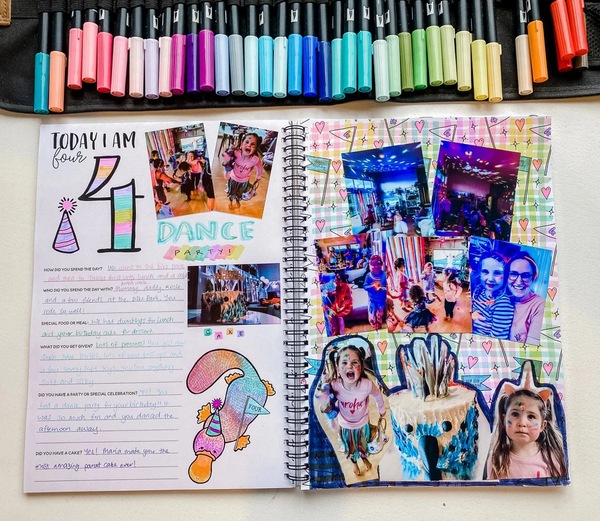 TODAY I AM
four
4
DANCE
PARTY!
HOW DID YOU SPEND THE DAY? We went to the
WHO DID YOU SPEND THE DAY WITH? Mummy, daddy,
and a few friends at the bike Park. You
rode so well!
SPECIAL FOOD OR MEAL: We had dumplings for lunch
and your birthday cake for dessert
WHAT DID YOU GET GIVEN? Lots of presents!
DID YOU HAVE A PARTY OR SPECIAL CELEBRATION? Yes! You
had a dance party for your birthday! It
was so much fun and you danced the
afternoon away.
DID YOU HAVE A CAKE? Yes! Maria made you the
most amazing parrot cake ever!
CAKE